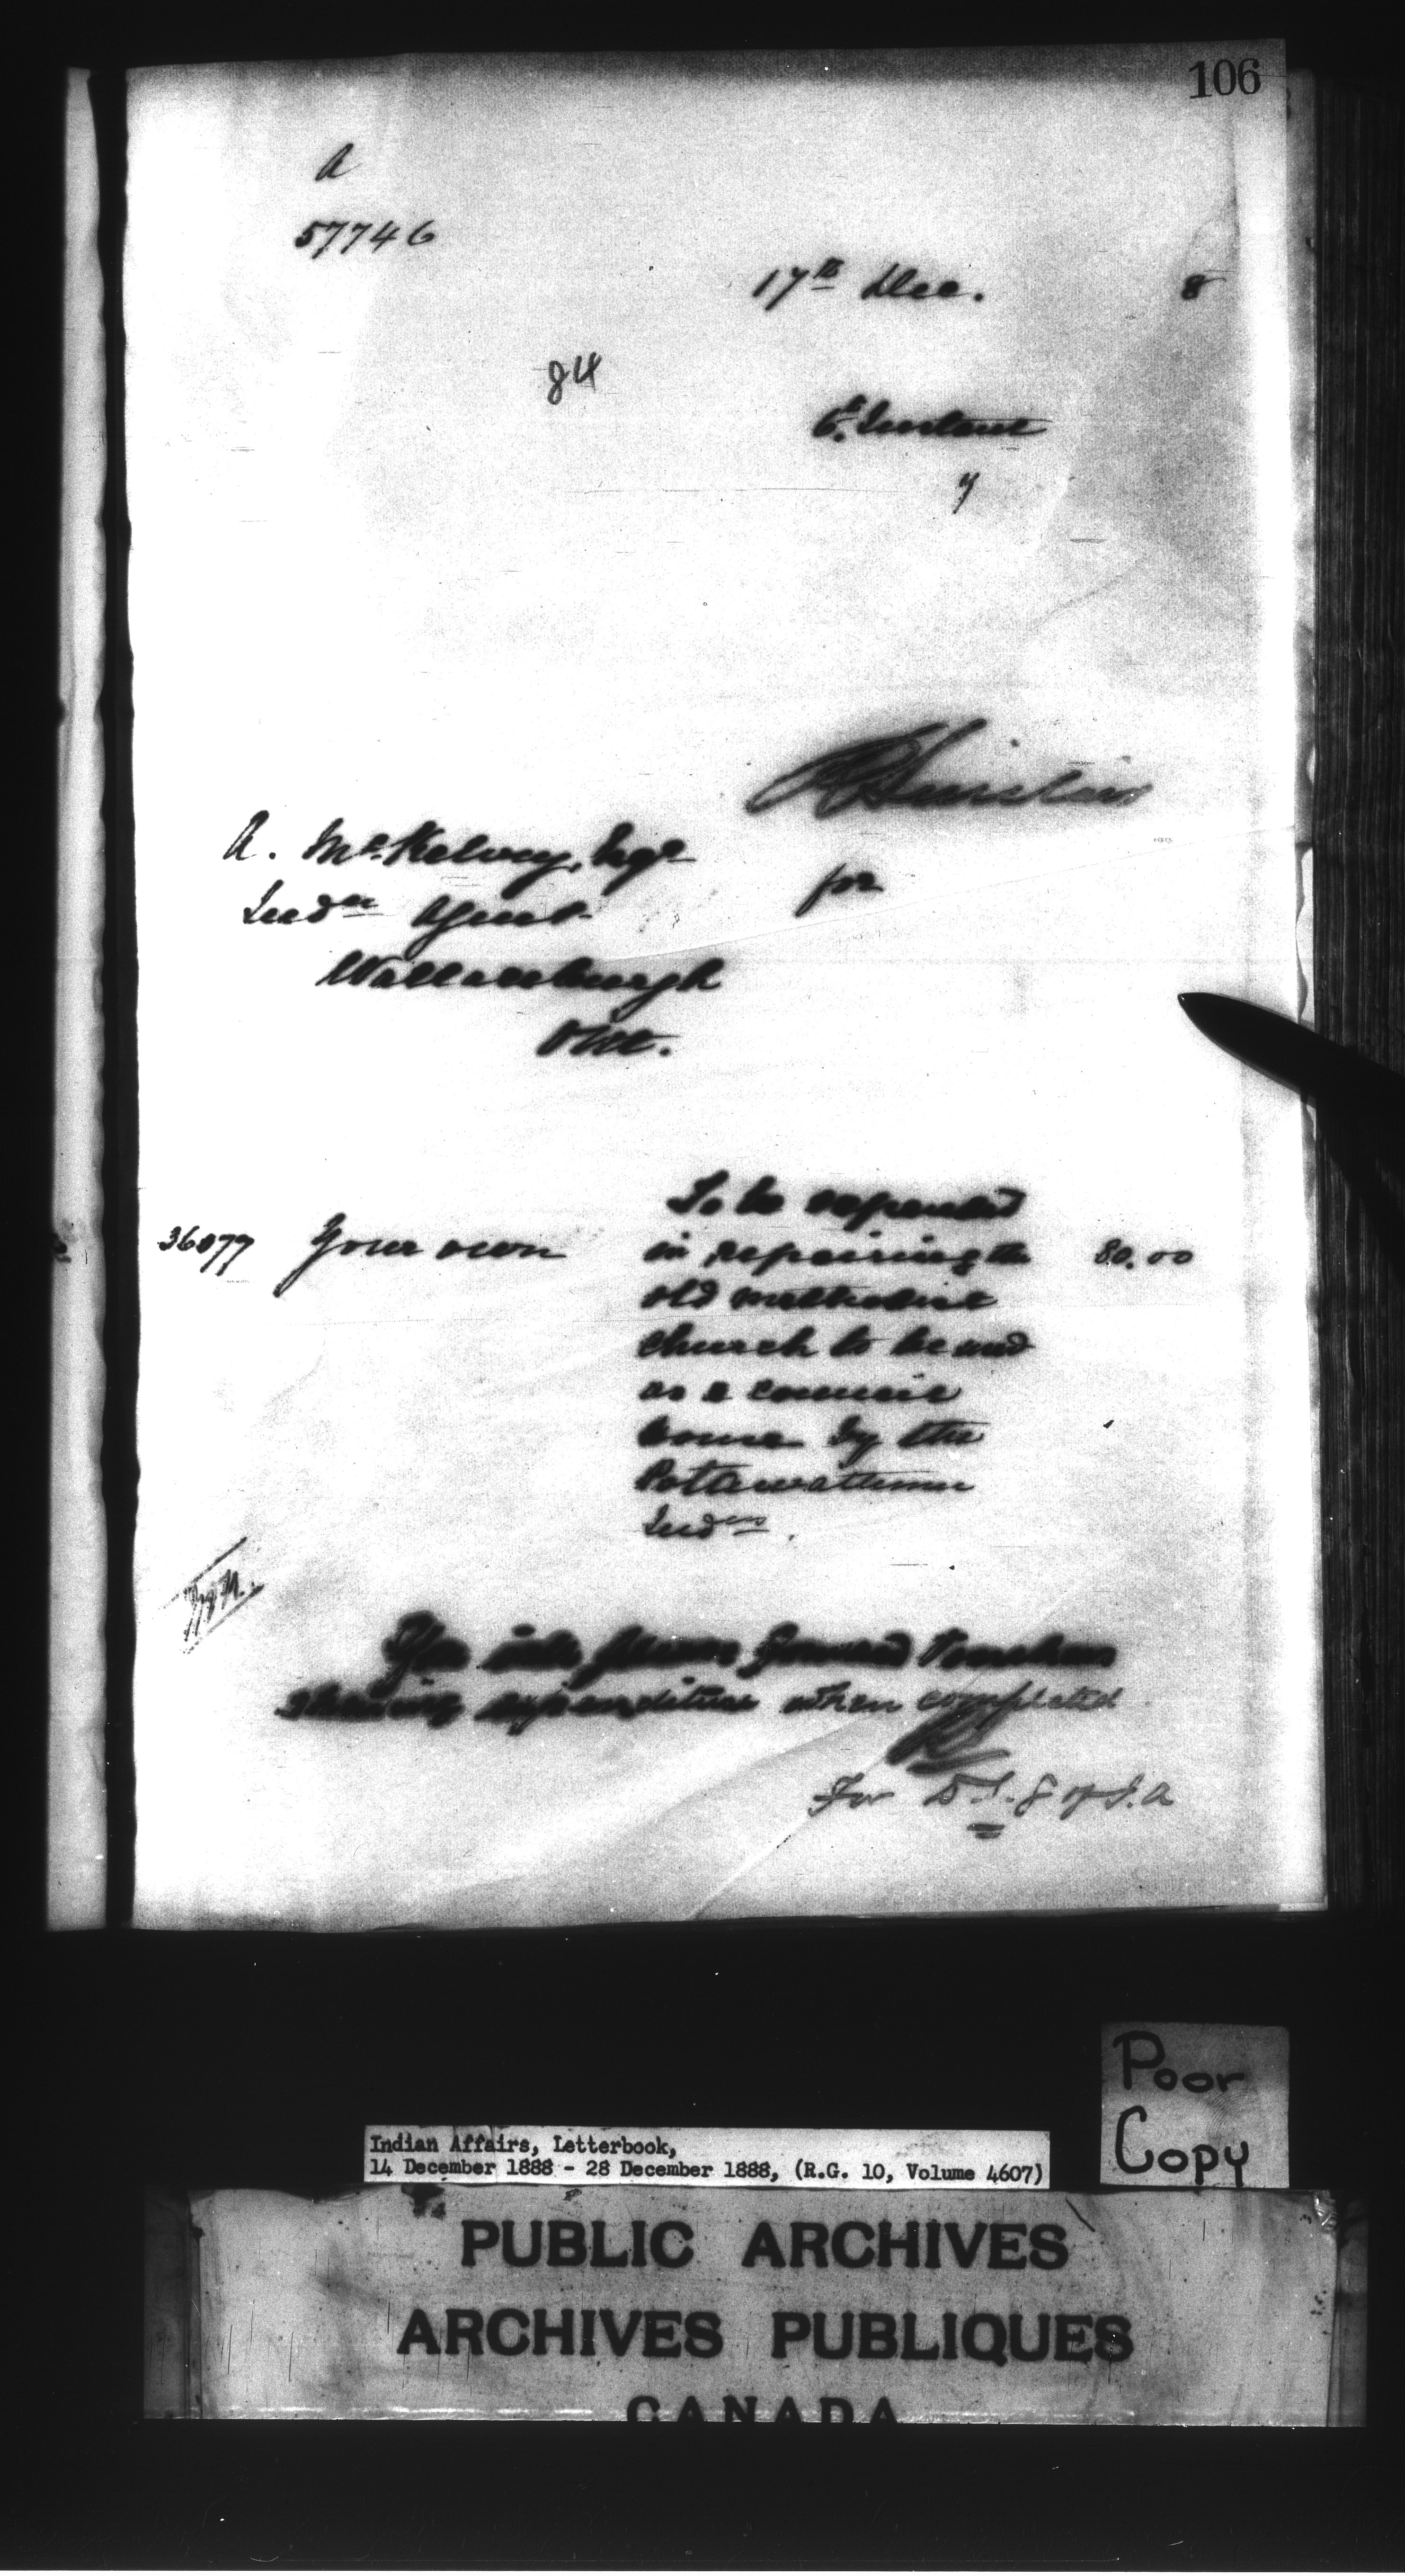 106
A
57746
17th Dec. 8
84
6th Instant
y
R Sinclair
A. McKelvey, Esqre
for
Indn Agent
Wallaceburgh
Ont.
To be expended
36077 Your own in repairing the 80.00
old methodist
church to be used
as a council
house by the
Pottawattamie
Indns.
You will please forward vouchers
showing expenditure when completed
RS
For D.S.G of I.A
Poor
Copy
Indian Affairs, Letterbook,
14 December 1888 - 28 December 1888, (R.G. 10, Volume 4607)
PUBLIC ARCHIVES
ARCHIVES PUBLIQUES
CANADA